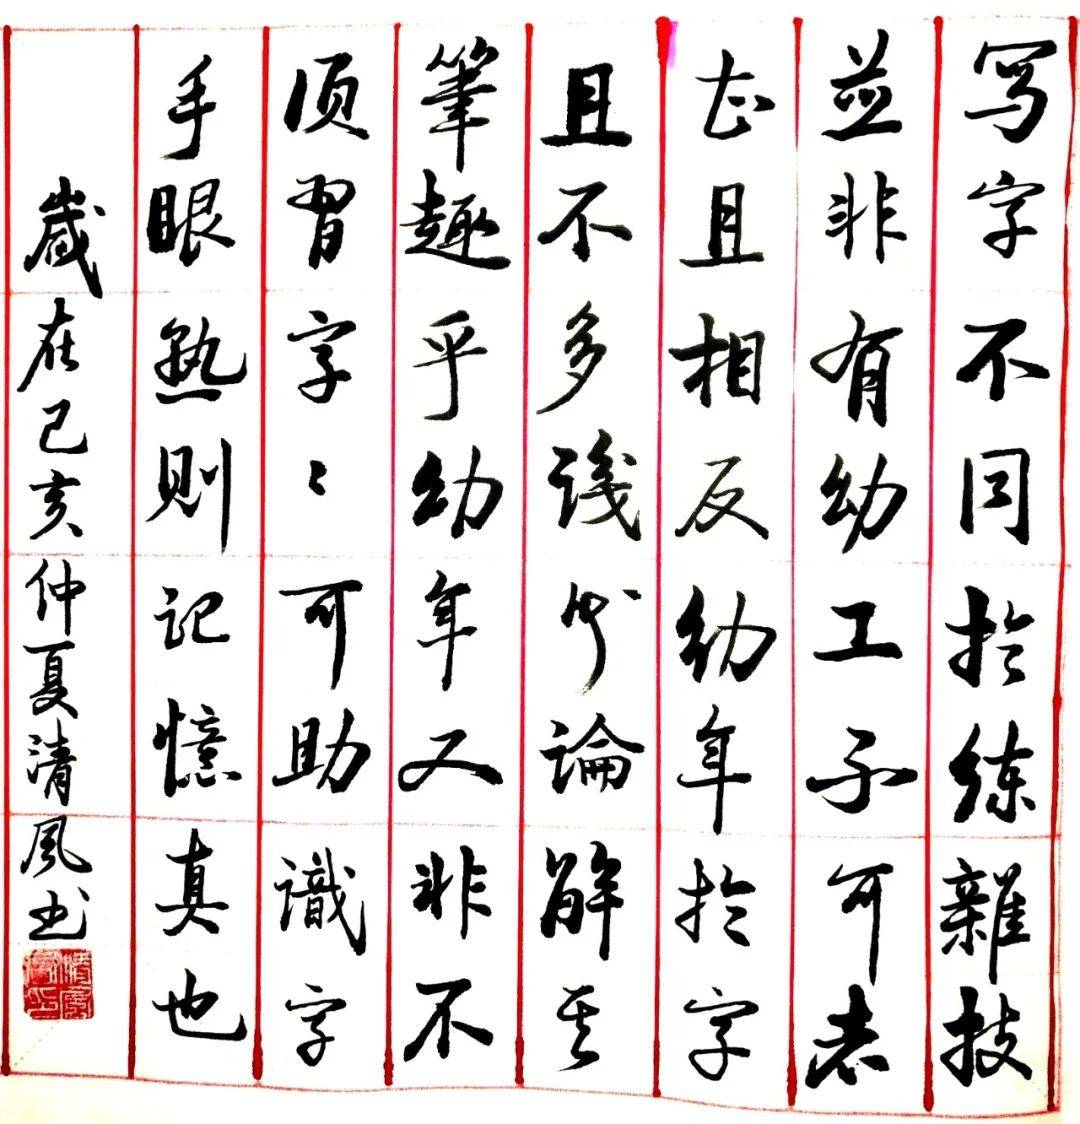 写字不同於練雜技
並非有幼工不可者
甚且相反幼年於字
且不多識何論解其
筆趣乎幼年又非不
須習字々可助識字
手眼熟則記憶真也
歲在己亥仲夏清風书